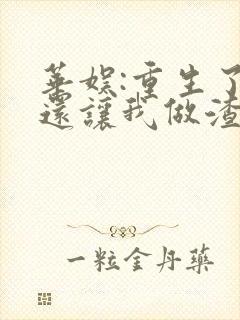 華娛:重生了
還讓我做渣
一粒金丹藥